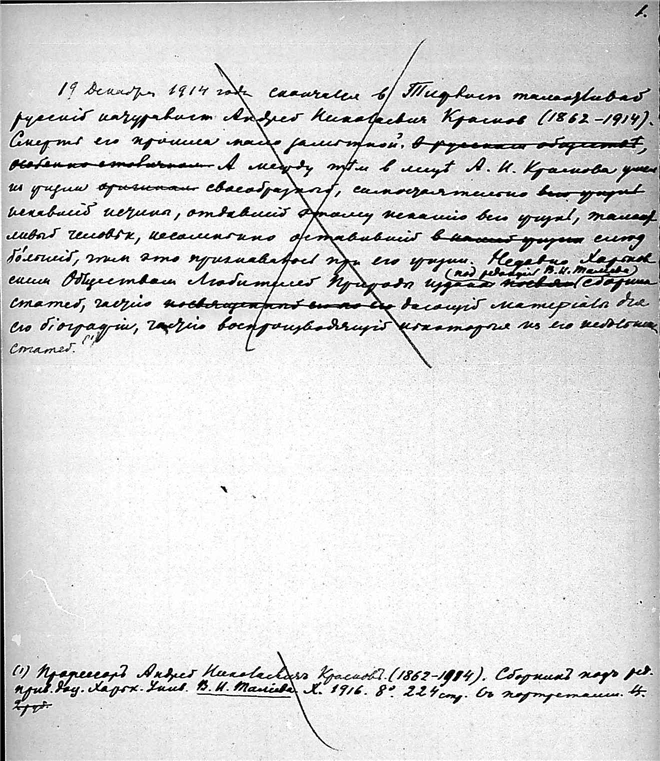 1.
19 Декабря 1914 года скончался в Тифлисе талантливый
русскій натуралист Андрей Николаевич Краснов (1862–1914).
Смерть его прошла мало замѣтной. В русском обществѣ,
особенно столичном А между тѣм в лицѣ А. Н. Краснова ушел
из жизни оригинал своеобразный, самостоятельно всю жизнь
искавшій истины, отдавшій этому исканію всю жизнь, талант
ливый человѣк, несомнѣнно оставившій в нашей жизни слѣд
бо́льшій, чѣм это признавалось при его жизни. Недавно Харьков
ским Обществом Любителей Природы издан
(под редакціей В. И. Таліева) сборник
статей, частью дающій матеріалы для
его біографіи, частью воспроизводящій нѣкоторыя из его небольших
статей. (1)
(1) Профессоръ Андрей Николаевич Красновъ. (1862–1914). Сборникъ подъ ред.
прив. доц. Харьк. Унив. В. И. Таліева. Х. 1916. 8º. 224 стр. Съ портретами. Ц.
2 руб.